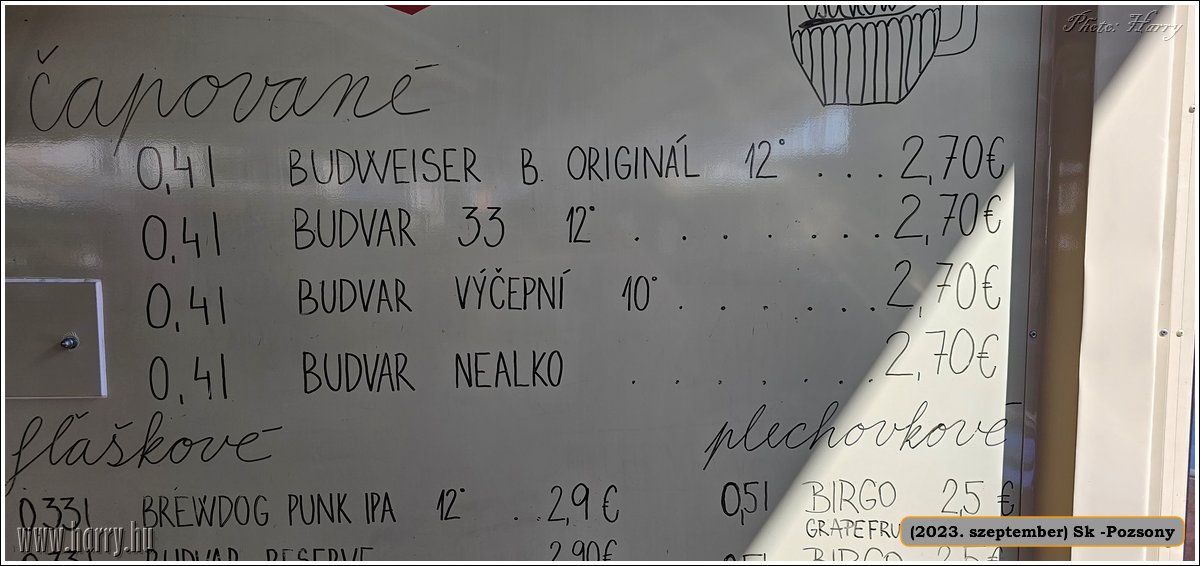 Photo: Harry
čapované
0,4l BUDWEISER B. ORIGINÁL 12° ... 2,70€
0,4l BUDVAR 33 12° ........ 2,70€
0,4l BUDVAR VÝČEPNÍ 10° ....... 2,70€
0,4l BUDVAR NEALKO ....... 2,70€
fľaškové
0,33l BREWDOG PUNK IPA 12° . 2,9 €
BUDVAR RESERVE 2,90€
plechovkové
0,5l BIRGO 2,5 €
0,5l BIRGO 2,5
www.harry.hu
(2023. szeptember) Sk -Pozsony